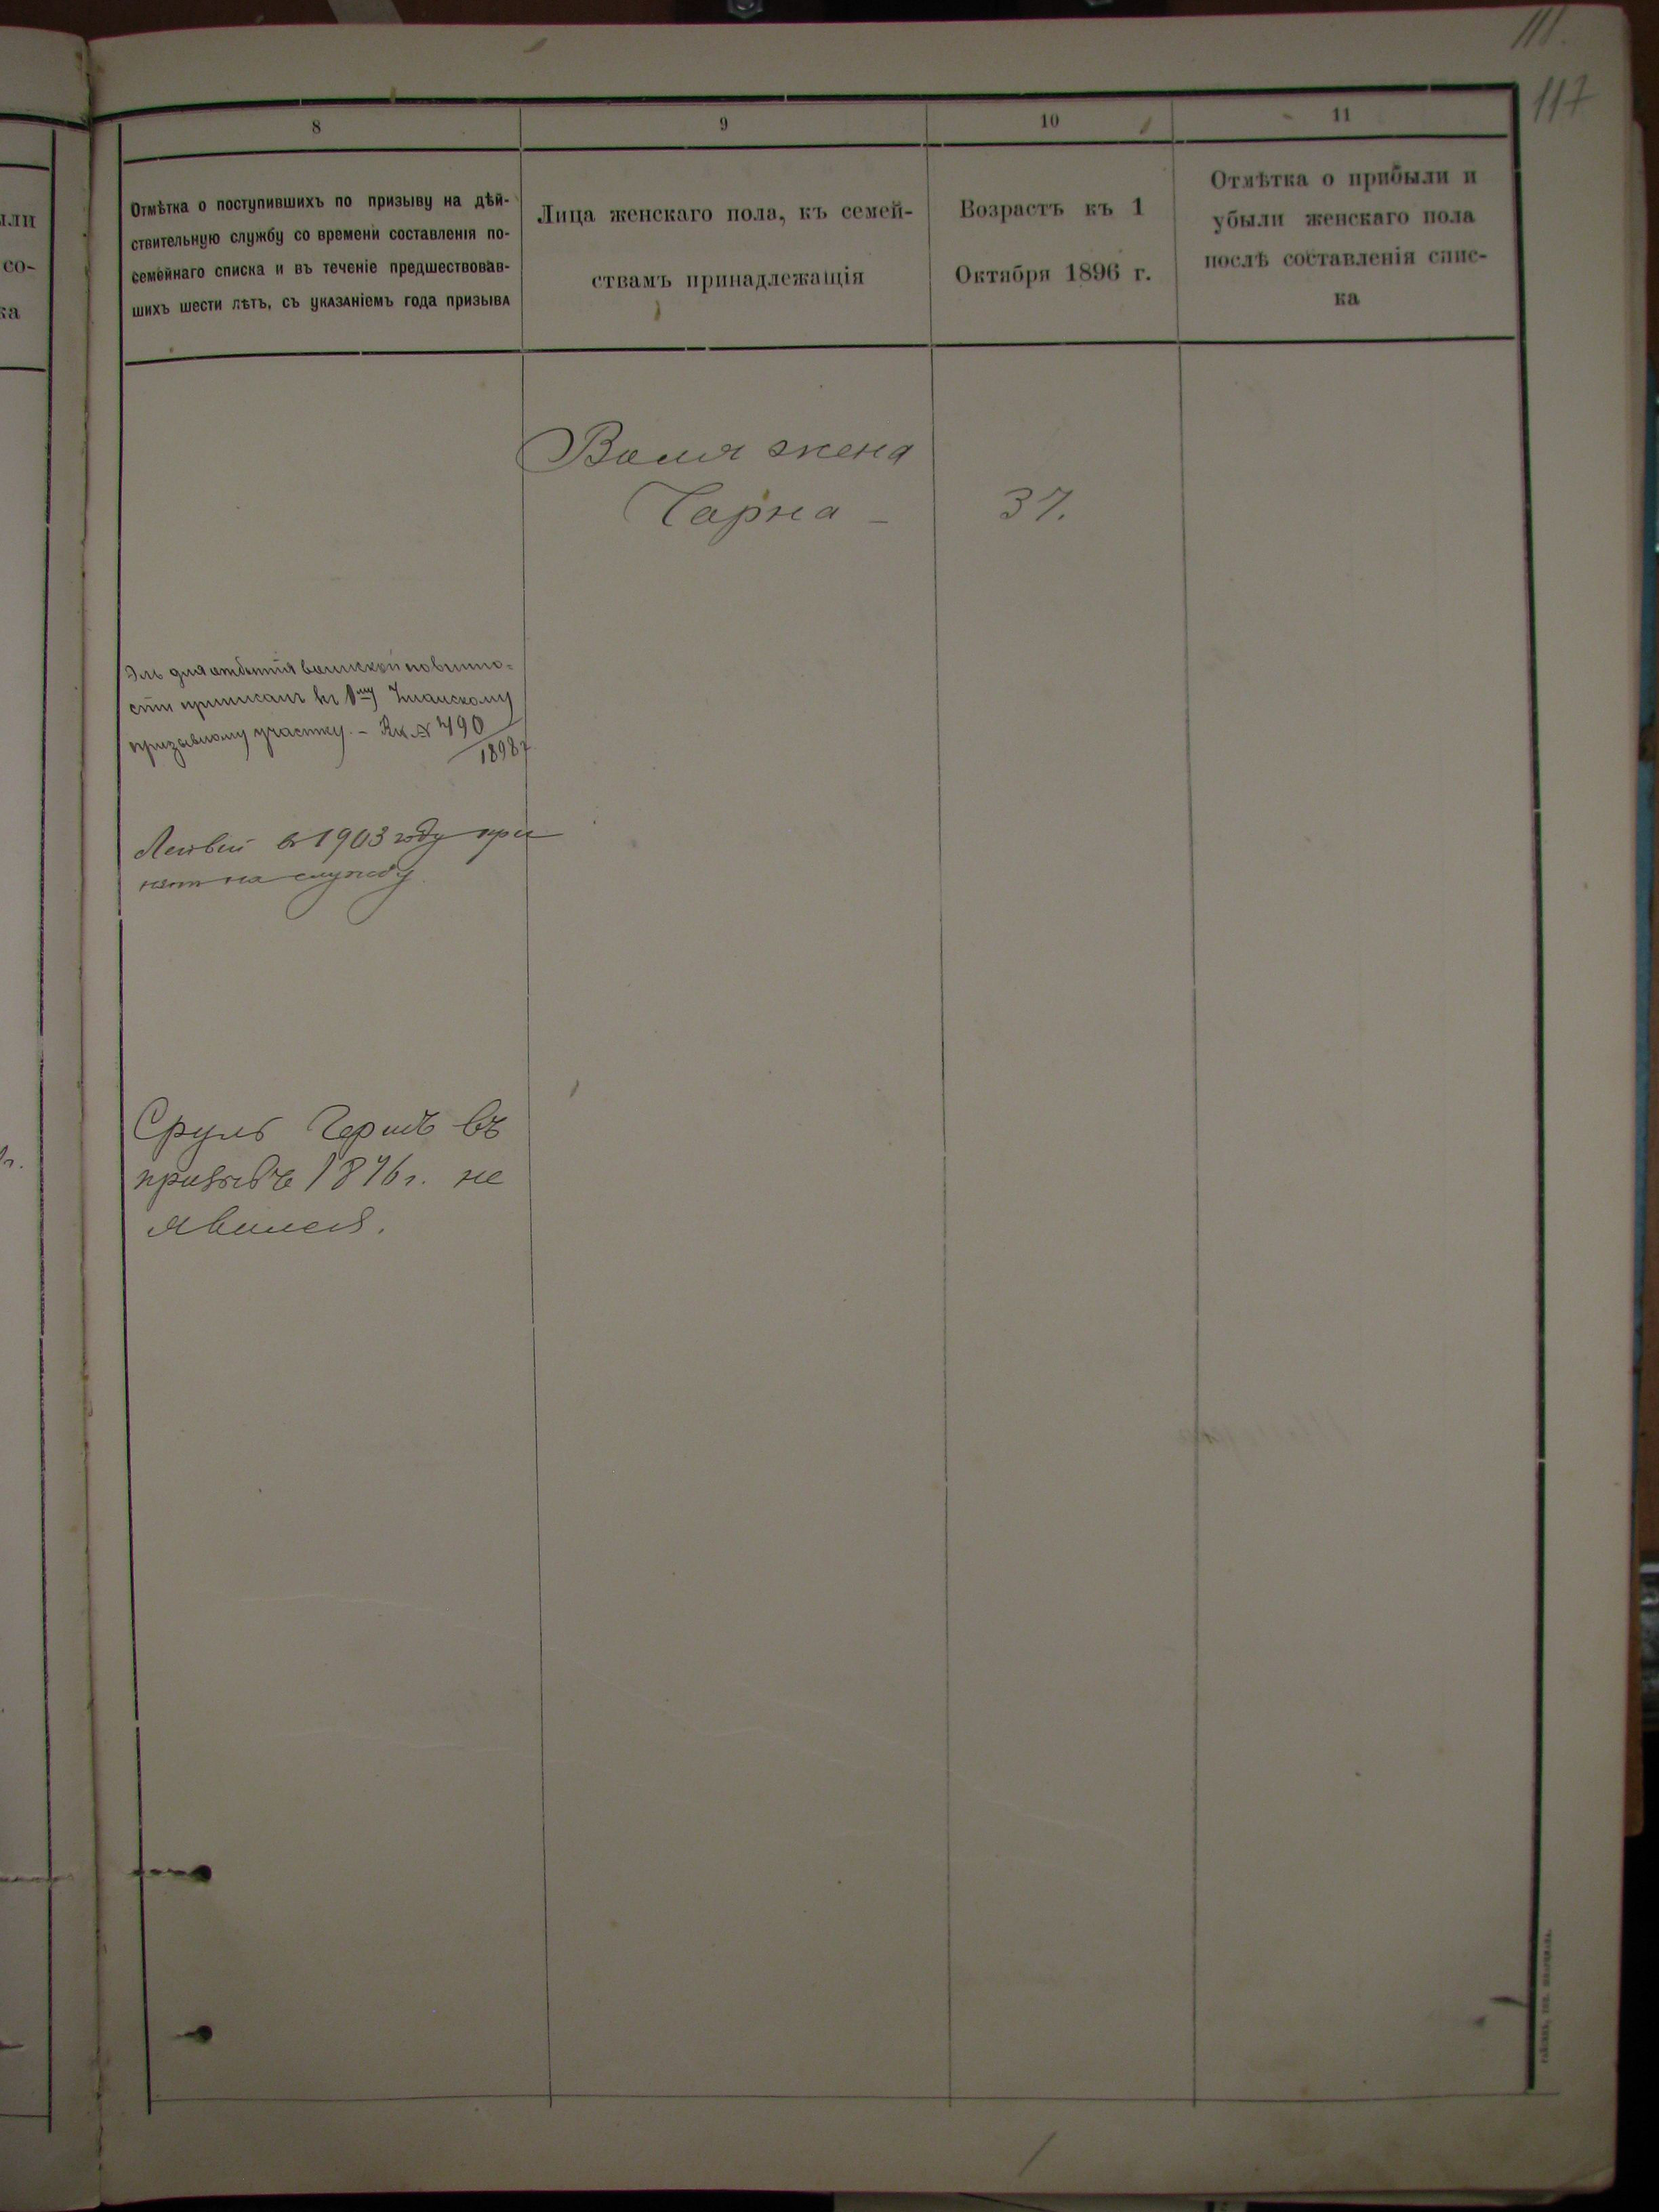 111.
117
8
9
10
11
Отмѣтка о поступившихъ по призыву на дѣй-
ствительную службу со времени составленія по-
семейнаго списка и въ теченіе предшествовав-
шихъ шести лѣтъ, съ указаніемъ года призыва
Лица женскаго пола, къ семей-
ствамъ принадлежащія
Возрастъ къ 1
Октября 1896 г.
Отмѣтка о прибыли и
убыли женскаго пола
послѣ составленія спис-
ка
жена
Чарна –
37.
для отбытія воинской повинно-
сти приписанъ къ 1му
призывному участку. – № 490
1898 г
в 1903 году при
нят на службу
Сруль Герш въ
призывѣ 1876 г. не
явился.
или
со-
ка